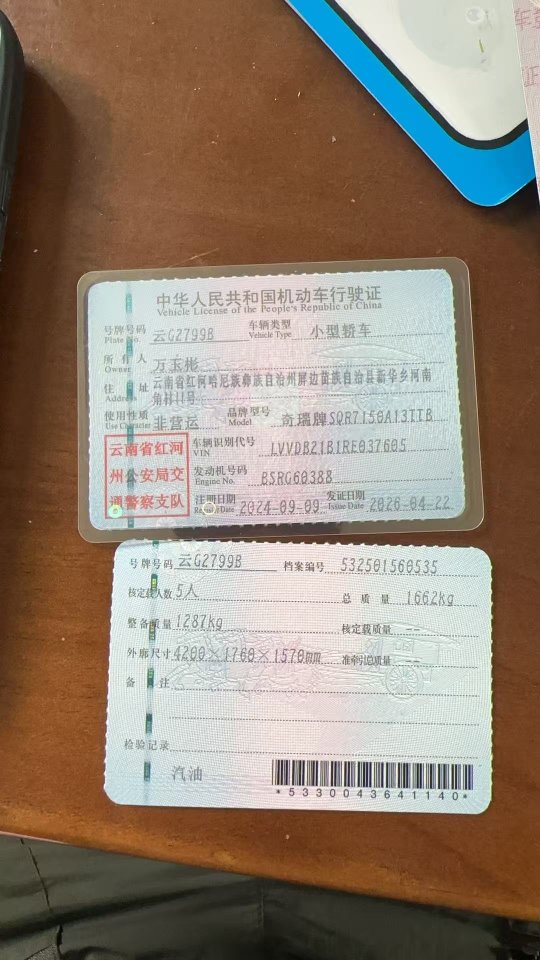 中华人民共和国机动车行驶证
Vehicle License of the People's Republic of China
号牌号码 Plate No. 云G2799B 车辆类型 Vehicle Type 小型轿车
所有人 Owner 万玉彬
住址 Address 云南省红河哈尼族彝族自治州屏边苗族自治县新华乡河南
村11号
使用性质 Use Character 非营运 品牌型号 Model 奇瑞牌SQR7150A13TTB
云南省红河
州公安局交
通警察支队
车辆识别代号 VIN LVVDB21B1RE037605
发动机号码 Engine No. BSRG60388
注册日期 Register Date 2024-09-09 发证日期 Issue Date 2026-04-22
号牌号码 云G2799B 档案编号 532501560535
核定载人数 5人 总质量 1662kg
整备质量 1287kg 核定载质量 --
外廓尺寸 4200×1760×1570mm 准牵引总质量 --
备注
检验记录
汽油
*5330043641140*